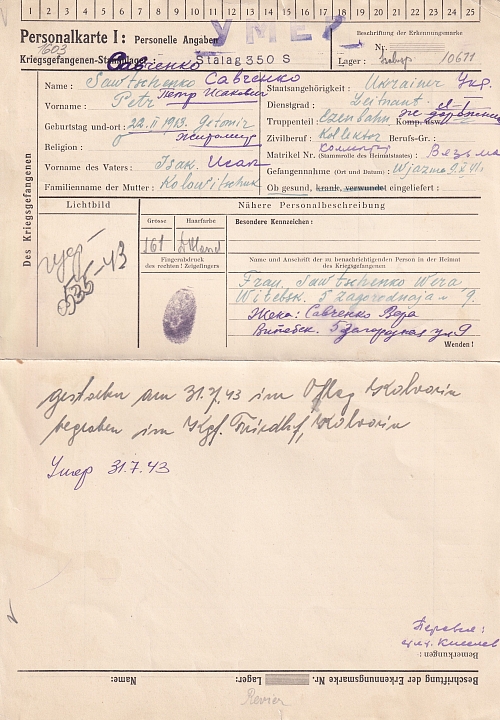 1 2 3 4 5 6 7 8 9 10 11 12 13 14 15 16 17 18 19 20 21 22 23 24 25
Personalkarte I: Personelle Angaben
УМЕР
Beschriftung der Erkennungsmarke
Nr.
1603
Kriegsgefangenen-Stammlager: Stalag 350 S
Lager: 10671
Савченко
Name: Sawtschenko Савченко
Staatsangehörigkeit: Ukrainer Укр.
Vorname: Petr Петр Исакович
Dienstgrad: Leitnant
Geburtstag und-ort: 22. II 1913. Gitomir
Truppenteil: Ezenbahn Komp. usw.
Житомир
Religion:
Zivilberuf: Kollektor Berufs-Gr.:
Matrikel Nr. (Stammrolle des Heimatstaates): Вязьма
Vorname des Vaters: Isak. Исак
Gefangennahme (Ort und Datum): Wjazma 9.X 41.
Familienname der Mutter:
Ob gesund, krank, verwundet eingeliefert:
Des Kriegsgefangenen
Lichtbild
Nähere Personalbeschreibung
Grösse
Haarfarbe
Besondere Kennzeichen:
161
Fingerabdruck
des rechten! Zeigefingers
Name und Anschrift der zu benachrichtigenden Person in der Heimat
des Kriegsgefangenen
535-43
Frau, Sawtschenko Wera
Witebsk. 5 Zagorodnaja 9.
Жена: Савченко Вера
Витебск. 5 Загородная ул 9
Wenden!
gestorben am 31.7.43 im Oflag Kalvaria
begraben im Kgf. Friedhof, Kalvaria
Умер 31.7.43
Перевел:
Bemerkungen:
Beschriftung der Erkennungsmarke Nr. Lager: Name:
Revier